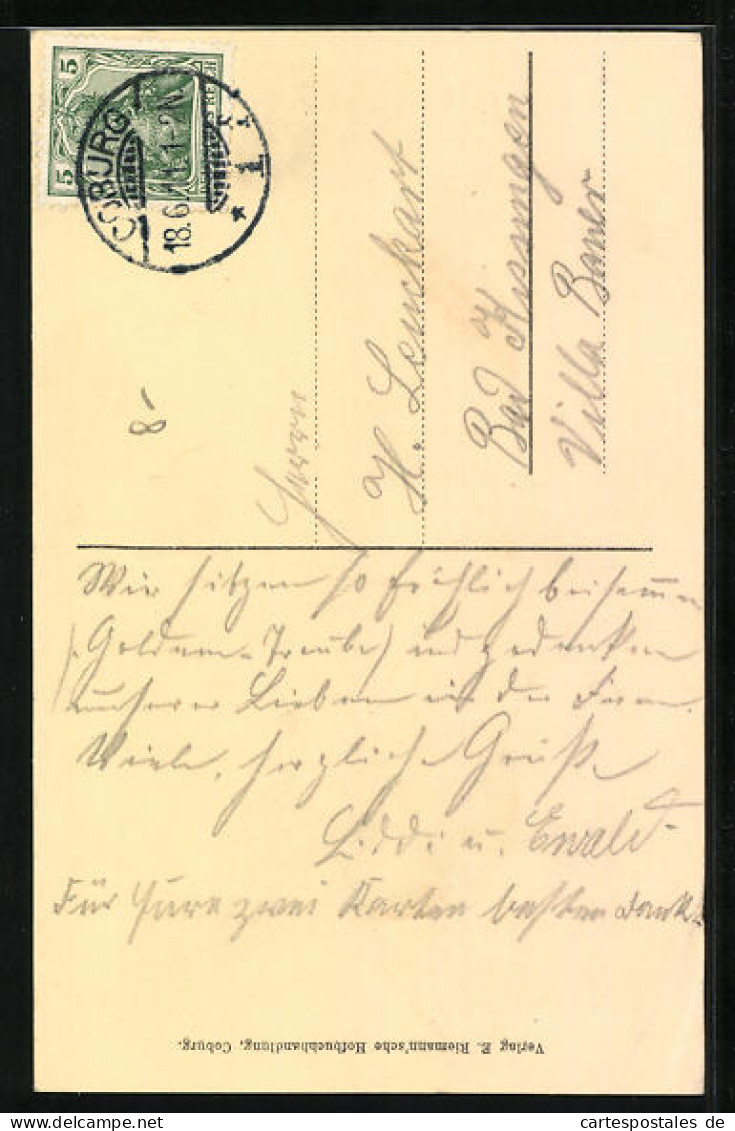 5 5
COBURG
18.6.11 1-2N
* 1
8-
Herrn
H. Leuckart
Bad Kissingen
Villa Bauer
Wir sitzen so fröhlich beisammen
(Goldene-Traube) und gedenken
unserer Lieben in der Ferne.
Viele, herzliche Grüße
Liddi u. Ewald.
Für Eure zwei Karten besten Dank!
Verlag E. Riemann'sche Hofbuchhandlung, Coburg.
cartespostales de